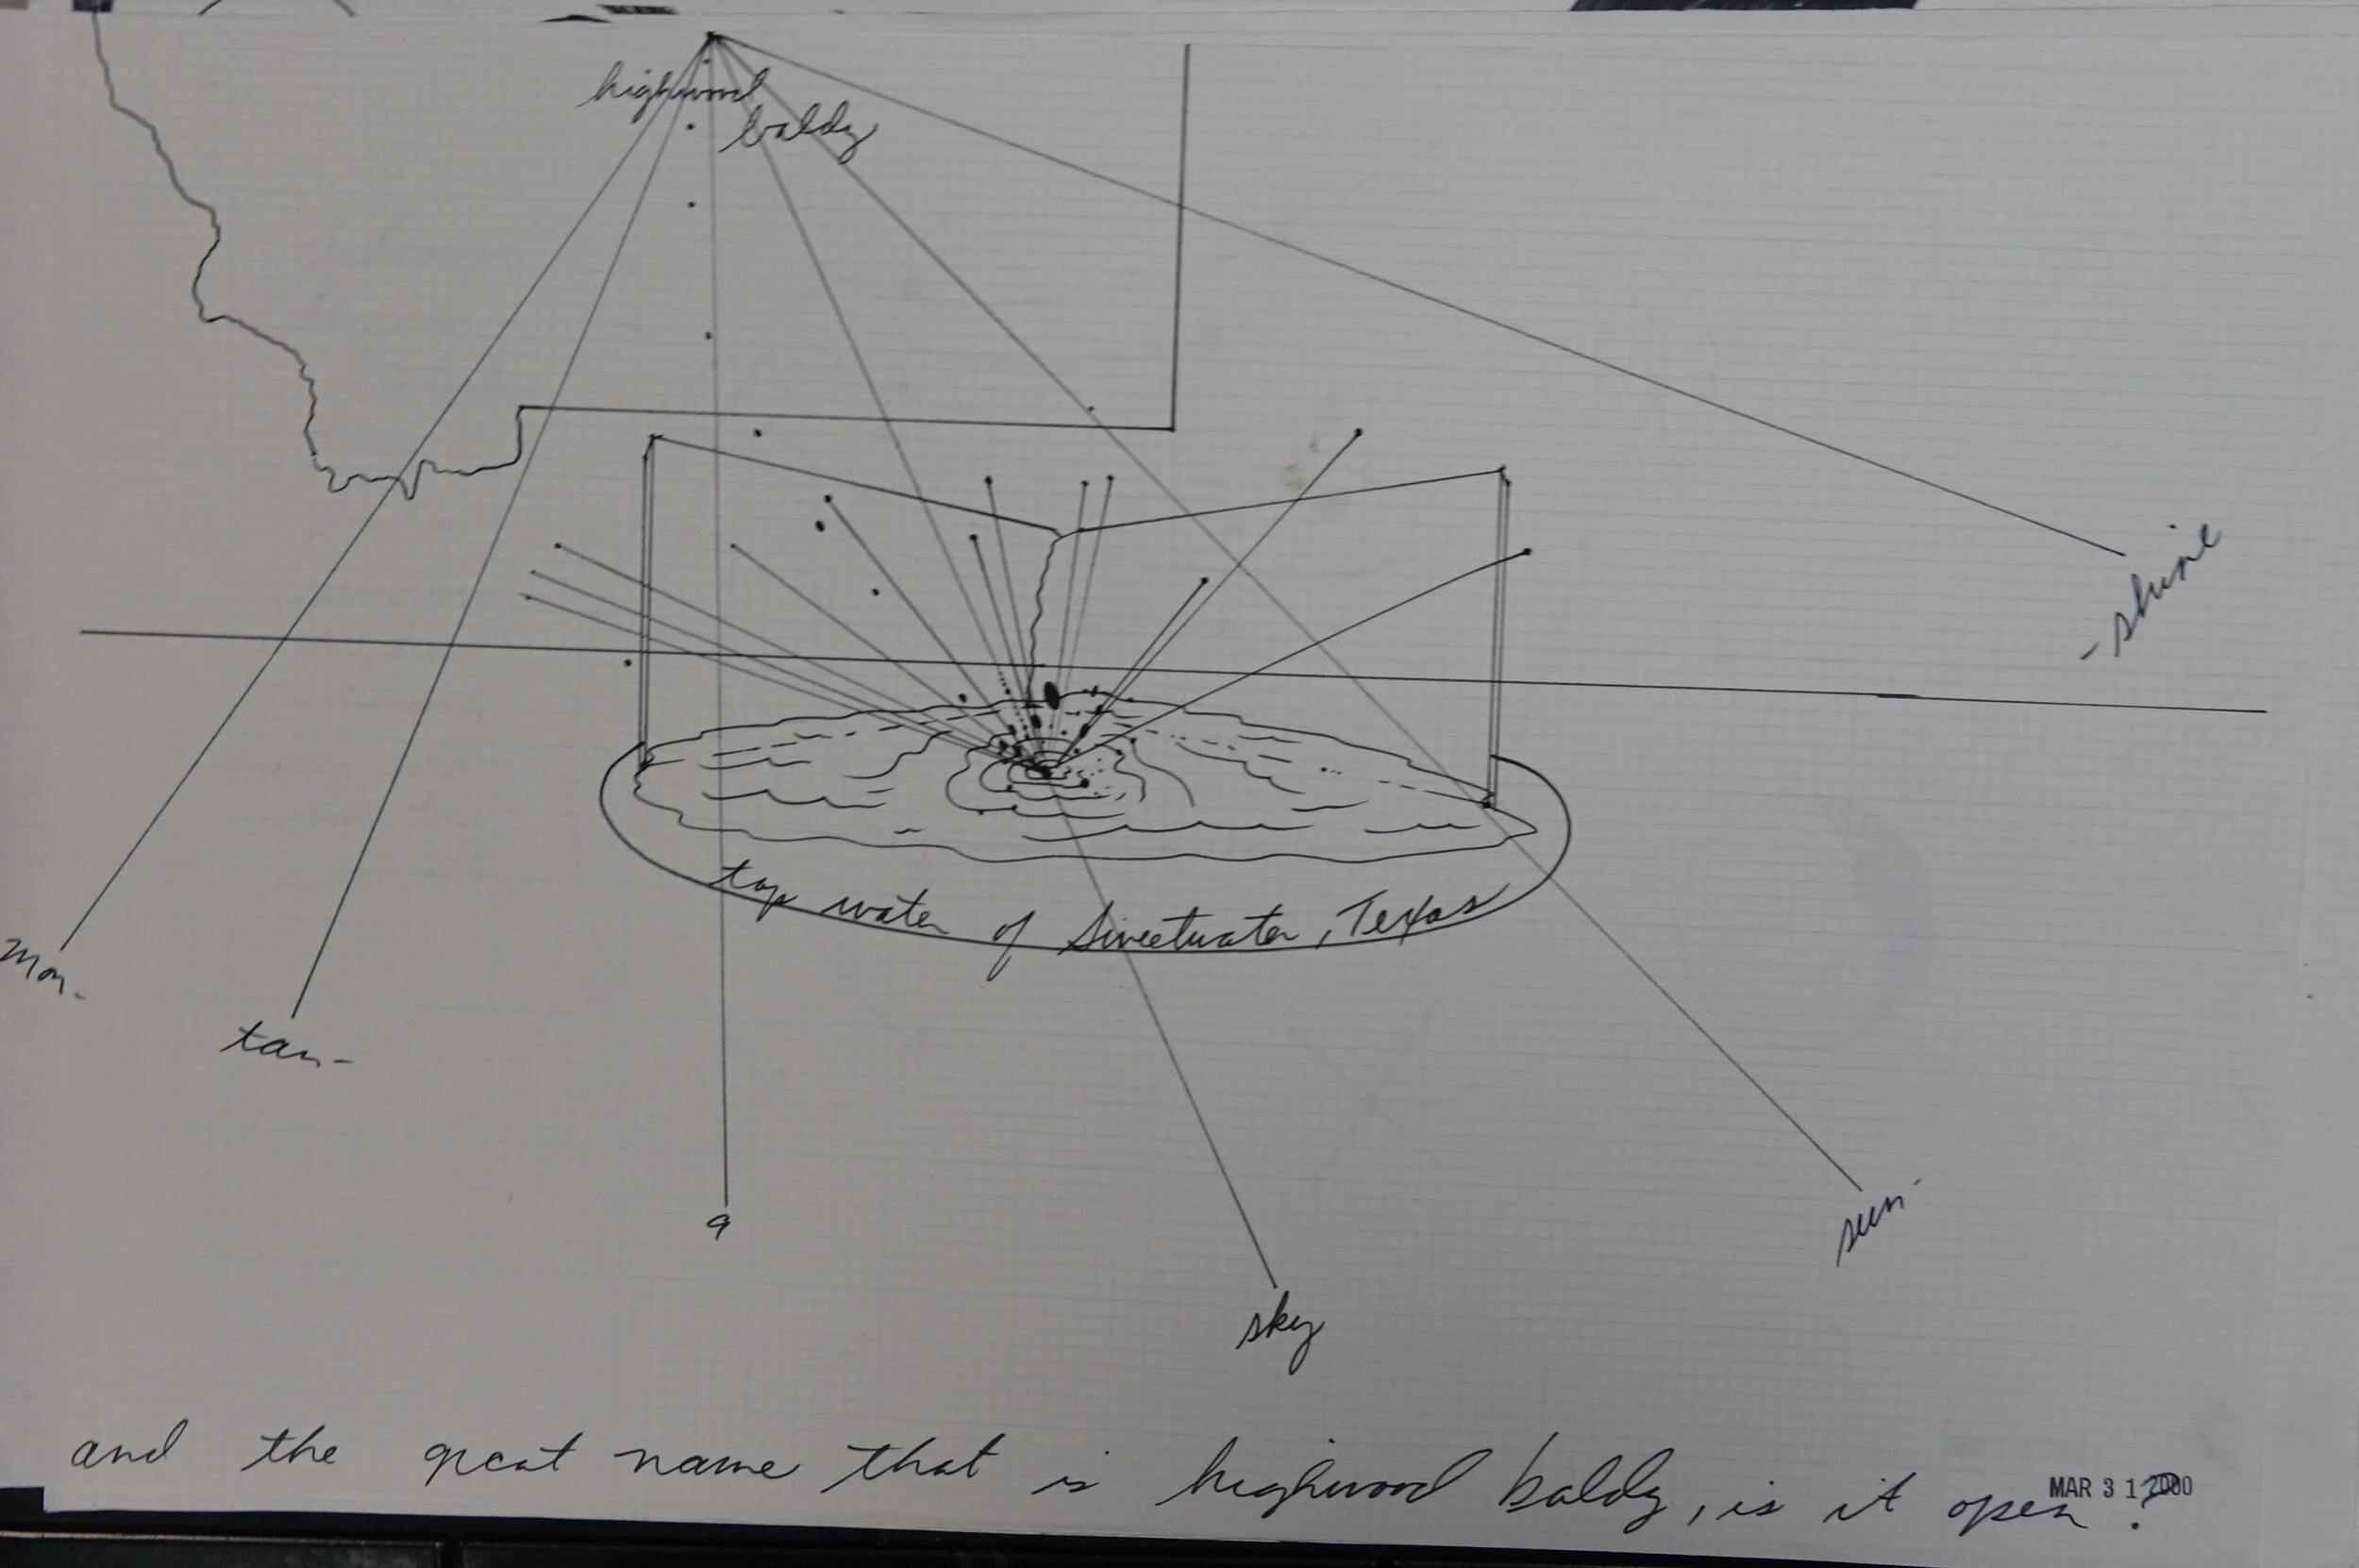 highwood
baldy
-shine
top water of Sweetwater, Texas
Mon-
tan-
a
sun-
sky
and the great name that is highwood baldy, is it open?
MAR 31 2000